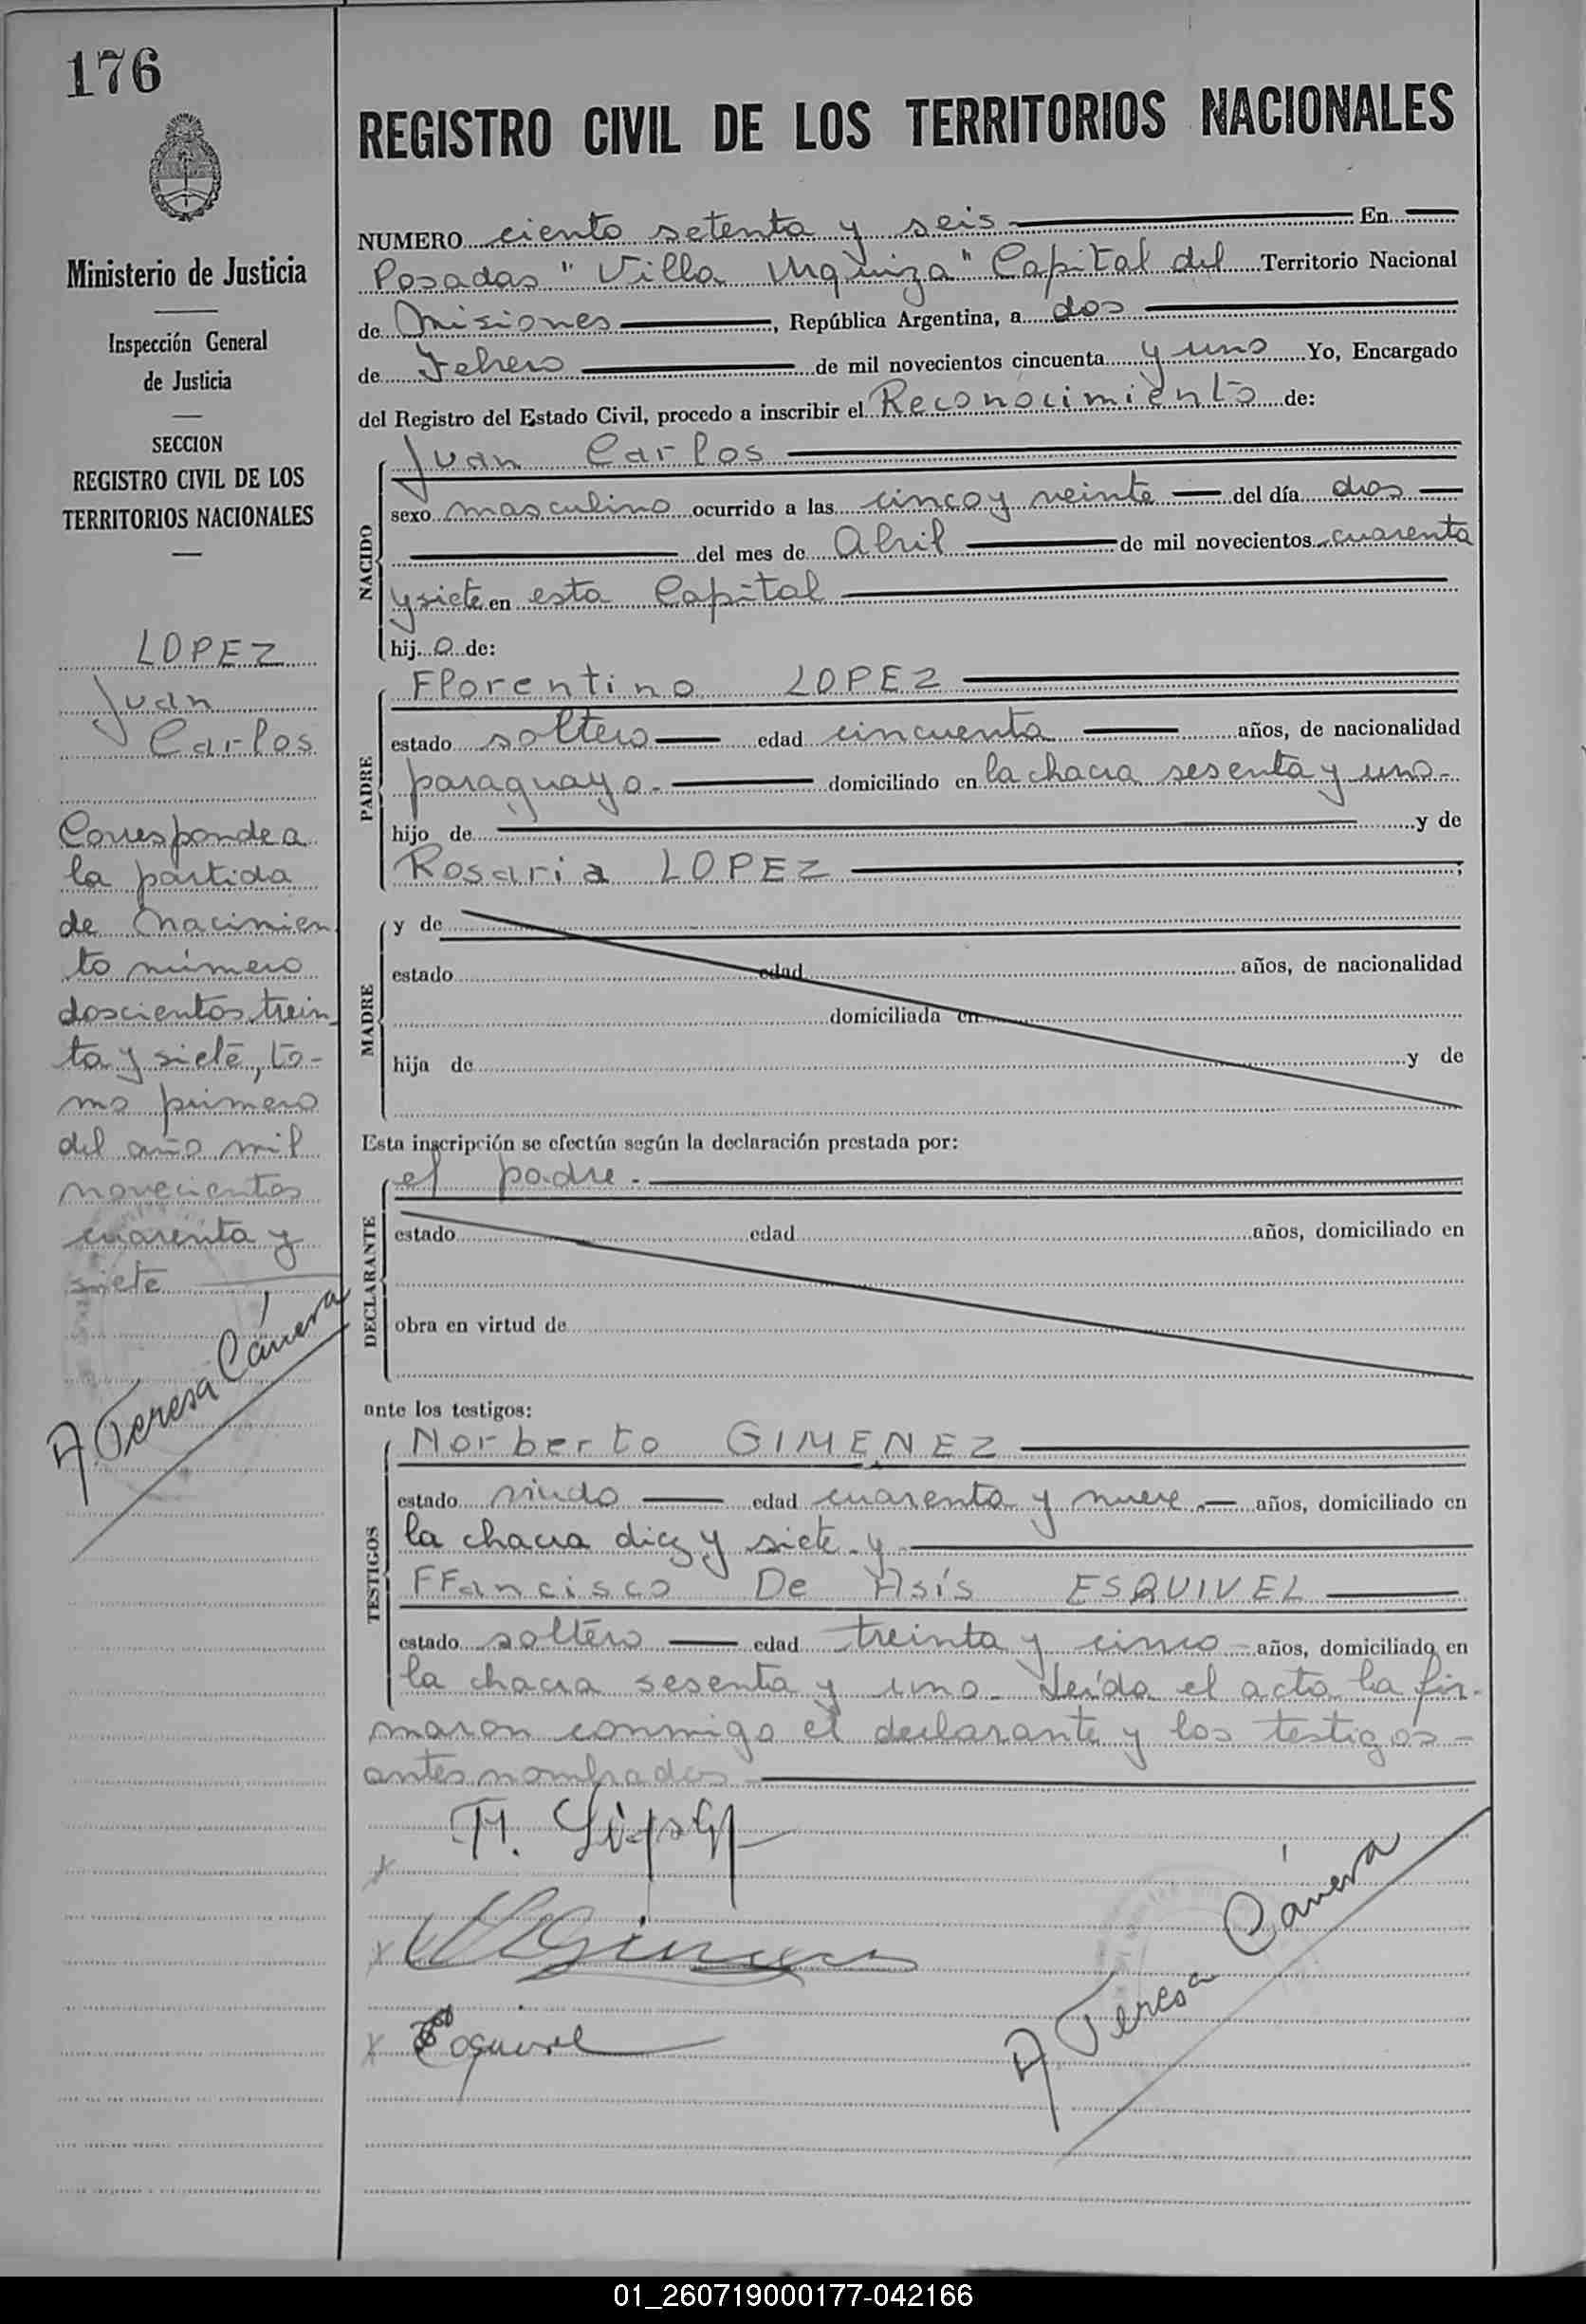 176
Ministerio de Justicia
Inspección General
de Justicia
SECCION
REGISTRO CIVIL DE LOS
TERRITORIOS NACIONALES
LOPEZ
Juan
Carlos
Corresponde a
la partida
de Nacimien
to número
doscientos trein
ta y siete, to-
mo primero
del año mil
novecientos
cuarenta y
siete
A Teresa Cánera
REGISTRO CIVIL DE LOS TERRITORIOS NACIONALES
NUMERO ciento setenta y seis En
Posadas "Villa Urquiza" Capital del Territorio Nacional
de Misiones, República Argentina, a dos
de Febrero de mil novecientos cincuenta y uno Yo, Encargado
del Registro del Estado Civil, procedo a inscribir el Reconocimiento de:
NACIDO
Juan Carlos
sexo masculino ocurrido a las cinco y veinte del día dos
del mes de Abril de mil novecientos cuarenta
y siete en esta Capital
hijo de:
PADRE
Florentino LOPEZ
estado soltero edad cincuenta años, de nacionalidad
paraguayo.- domiciliado en la chacra sesenta y uno-
hijo de y de
Rosaria LOPEZ ;
MADRE
y de
estado edad años, de nacionalidad
domiciliada en
hija de y de
Esta inscripción se efectúa según la declaración prestada por:
DECLARANTE
el padre.-
estado edad años, domiciliado en
obra en virtud de
ante los testigos:
TESTIGOS
Norberto GIMENEZ
estado viudo edad cuarenta y nueve.- años, domiciliado en
la chacra diez y siete.y-
FFancisco De Asís ESQUIVEL
estado soltero edad treinta y cinco - años, domiciliado en
la chacra sesenta y uno- Leída el acta la fir-
maron conmigo el declarante y los testigos-
antes nombrados-
x
x
x Esquivel
A Teresa Cánera
01_260719000177-042166